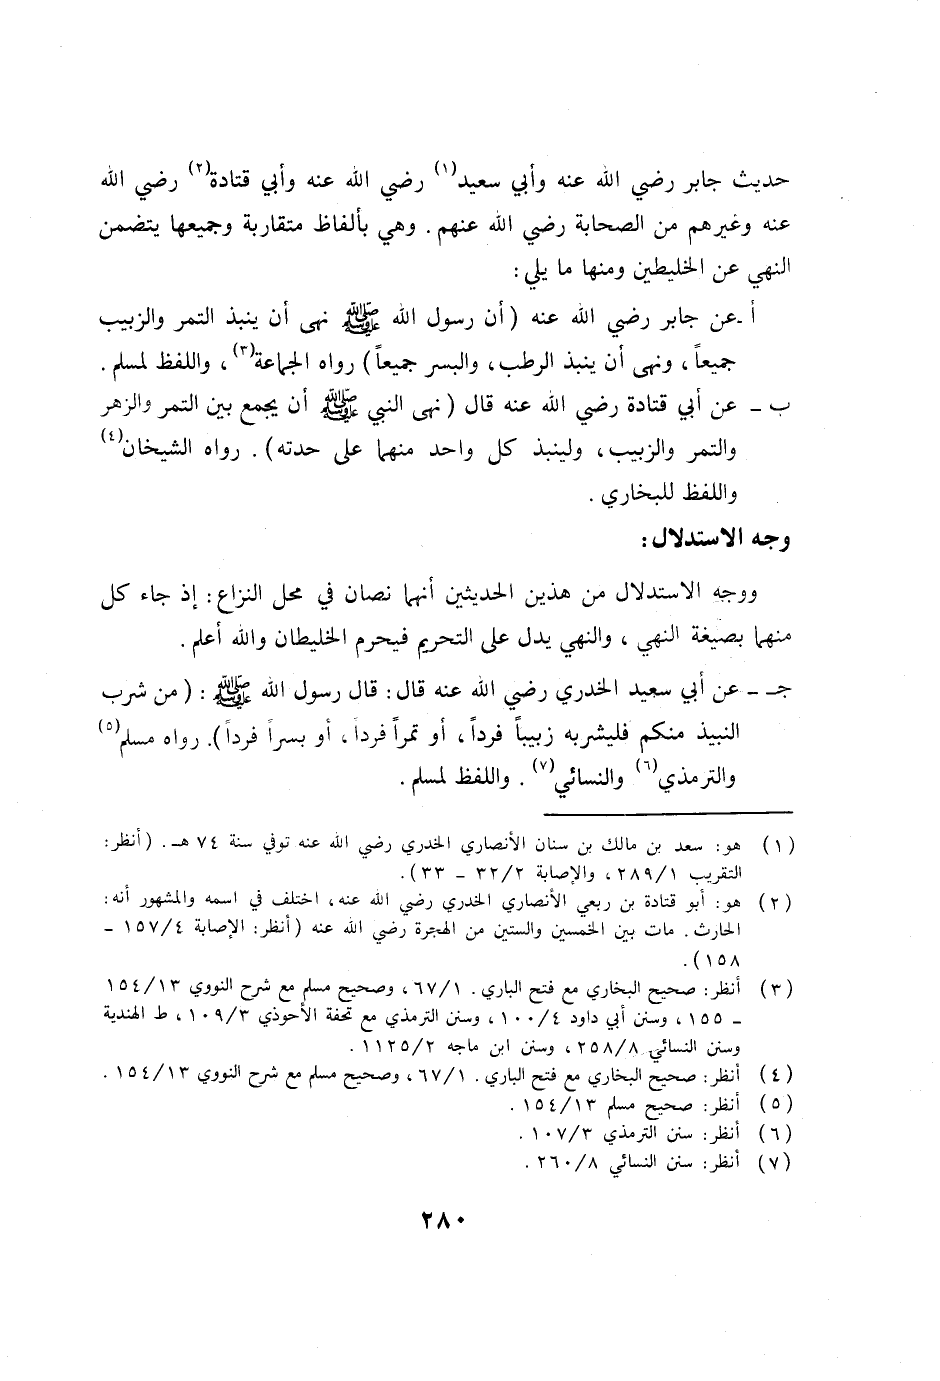 حديث جابر رضي الله عنه وأبي سعيد(١) رضي الله عنه وأبي قتادة(٢) رضي الله
عنه وغيرهم من الصحابة رضي الله عنهم . وهي بألفاظ متقاربة وجميعها يتضمن
النهي عن الخليطين ومنها ما يلي :
أ ـ عن جابر رضي الله عنه ( أن رسول الله ﷺ نهى أن ينبذ التمر والزبيب
جميعاً ، ونهى أن ينبذ الرطب ، والبسر جميعاً ) رواه الجماعة(٣) ، واللفظ لمسلم .
ب ـ عن أبي قتادة رضي الله عنه قال ( نهى النبي ﷺ أن يجمع بين التمر والزهر
والتمر والزبيب ، ولينبذ كل واحد منهما على حدته ) . رواه الشيخان(٤)
واللفظ للبخاري .
وجه الاستدلال :
ووجه الاستدلال من هذين الحديثين أنهما نصان في محل النزاع : إذ جاء كل
منهما بصيغة النهي ، والنهي يدل على التحريم فيحرم الخليطان والله أعلم .
جـ ـ عن أبي سعيد الخدري رضي الله عنه قال : قال رسول الله ﷺ : ( من شرب
النبيذ منكم فليشربه زبيباً فرداً ، أو تمراً فرداً ، أو بسراً فرداً ) . رواه مسلم(٥)
والترمذي(٦) والنسائي(٧) . واللفظ لمسلم .
(١) هو : سعد بن مالك بن سنان الأنصاري الخدري رضي الله عنه توفي سنة ٧٤ هـ . ( أنظر :
التقريب ٢٨٩/١ ، والإصابة ٣٢/٢ ـ ٣٣ ) .
(٢) هو : أبو قتادة بن ربعي الأنصاري الخدري رضي الله عنه ، اختلف في اسمه والمشهور أنه :
الحارث . مات بين الخمسين والستين من الهجرة رضي الله عنه ( أنظر : الإصابة ١٥٧/٤ ـ
١٥٨ ) .
(٣) أنظر : صحيح البخاري مع فتح الباري . ٦٧/١ ، وصحيح مسلم مع شرح النووي ١٥٤/١٣
ـ ١٥٥ ، وسنن أبي داود ١٠٠/٤ ، وسنن الترمذي مع تحفة الأحوذي ١٠٩/٣ ، ط الهندية
وسنن النسائي ٢٥٨/٨ ، وسنن ابن ماجه ١١٢٥/٢ .
(٤) أنظر : صحيح البخاري مع فتح الباري . ٦٧/١ ، وصحيح مسلم مع شرح النووي ١٥٤/١٣ .
(٥) أنظر : صحيح مسلم ١٥٤/١٣ .
(٦) أنظر : سنن الترمذي ١٠٧/٣ .
(٧) أنظر : سنن النسائي ٢٦٠/٨ .
٢٨٠